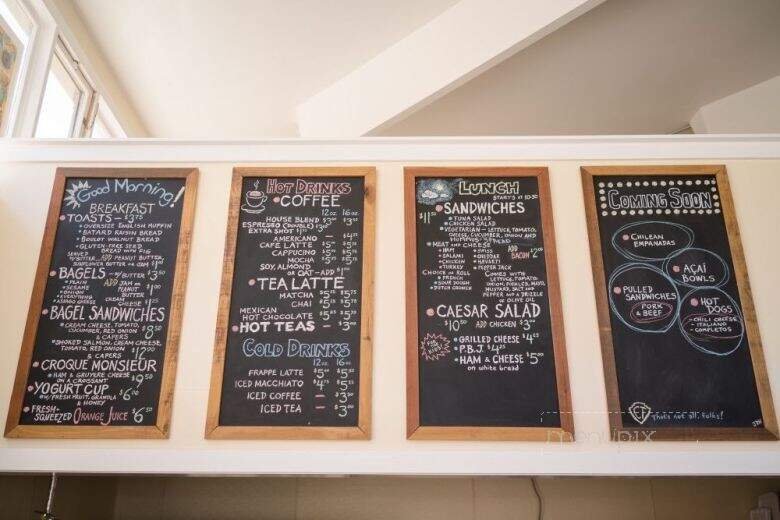 Good Morning!
BREAKFAST
TOASTS - $3.75
OVERSIZE ENGLISH MUFFIN
BATARD RAISIN BREAD
BOULOT WALNUT BREAD
GLUTEN-FREE SEED
BREAD WITH FIG
SERVE W/ BUTTER, ADD PEANUT BUTTER,
SUNFLOWER BUTTER OR JAM
BAGELS - W/ BUTTER $3.50
PLAIN
SESAME
ONION
EVERYTHING
ASIAGO CHEESE
ADD JAM OR
PEANUT
BUTTER
CREAM
CHEESE
BAGEL SANDWICHES
CREAM CHEESE, TOMATO,
CUCUMBER, RED ONION
& CAPERS $8.50
SMOKED SALMON, CREAM CHEESE,
TOMATO, RED ONION
& CAPERS $12.00
CROQUE MONSIEUR
HAM & GRUYERE CHEESE
ON A CROISSANT $9.50
YOGURT CUP
W/FRESH FRUIT, GRANOLA
& HONEY $6.50
FRESH-
SQUEEZED ORANGE JUICE $6.50
HOT DRINKS
COFFEE
12 OZ. 16 OZ.
HOUSE BLEND $3.00
ESPRESSO (DOUBLE) $3.00
EXTRA SHOT
AMERICANO -
CAFE LATTE
CAPPUCINO
MOCHA
SOY, ALMOND
OR OAT - ADD
TEA LATTE
MATCHA
CHAI
MEXICAN
HOT CHOCOLATE
HOT TEAS - $3
COLD DRINKS
12 OZ. 16 OZ.
FRAPPE LATTE
ICED MACCHIATO
ICED COFFEE -
ICED TEA -
LUNCH
STARTS @ 10:30
SANDWICHES
$11.00
TUNA SALAD
CHICKEN SALAD
VEGETARIAN - LETTUCE, TOMATO,
CHEESE, CUCUMBER, ONION AND
HUMMUS SPREAD
MEAT AND CHEESE
HAM
SALAMI
CHICKEN
TURKEY
SWISS
CHEDDAR
HAVARTI
PEPPER JACK
ADD
BACON $2.00
CHOICE OF ROLL
FRENCH
SOUR DOUGH
DUTCH CRUNCH
COMES WITH
LETTUCE, TOMATO,
ONION, PICKLES, MAYO,
MUSTARD, SALT AND
PEPPER AND A DRIZZLE
OF OLIVE OIL
CAESAR SALAD
$10.50 ADD CHICKEN $3.00
FOR
KIDS
GRILLED CHEESE $4.00
P.B.J. $4.25
HAM & CHEESE $5.00
ON WHITE BREAD
COMING SOON
CHILEAN
EMPANADAS
AÇAÍ
BOWLS
PULLED
SANDWICHES
PORK
& BEEF
HOT
DOGS
CHILI CHEESE
ITALIANO
COMPLETOS
That's not all, folks!
menupix